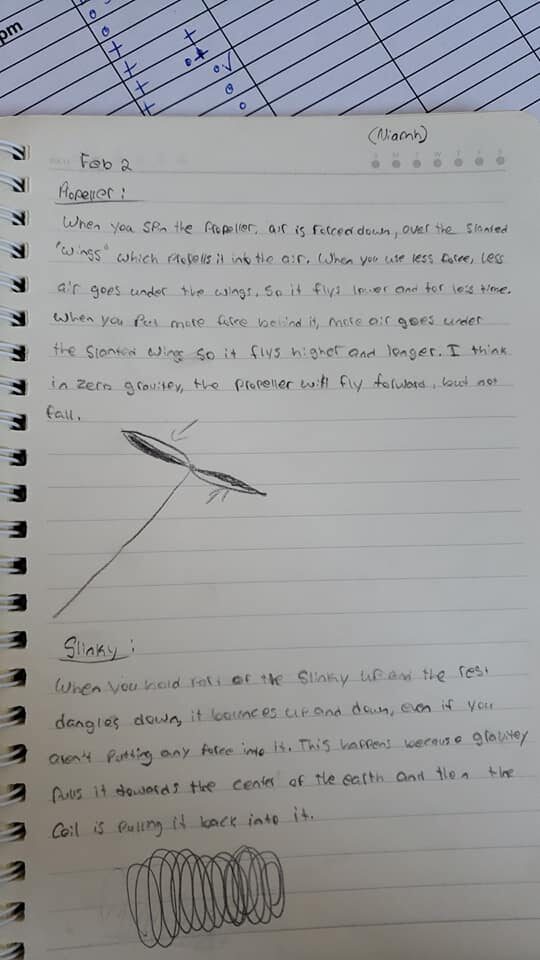 pm
(Niamh)
Feb 2
S M T W T F S
Propeller:
When you spin the Propeller, air is forced down, over the slanted
"wings" which propells it into the air. When you use less force, less
air goes under the wings, so it flys lower and for less time.
When you put more force behind it, more air goes under
the slanted wings so it flys higher and longer. I think
in zero gravitey, the propeller will fly forward, but not
fall.
Slinky:
When you hold part of the Slinky up and the rest
dangles down, it bounces up and down, even if you
aren't putting any force into it. This happens because gravitey
pulls it towards the center of the earth and then the
Coil is pulling it back into it.